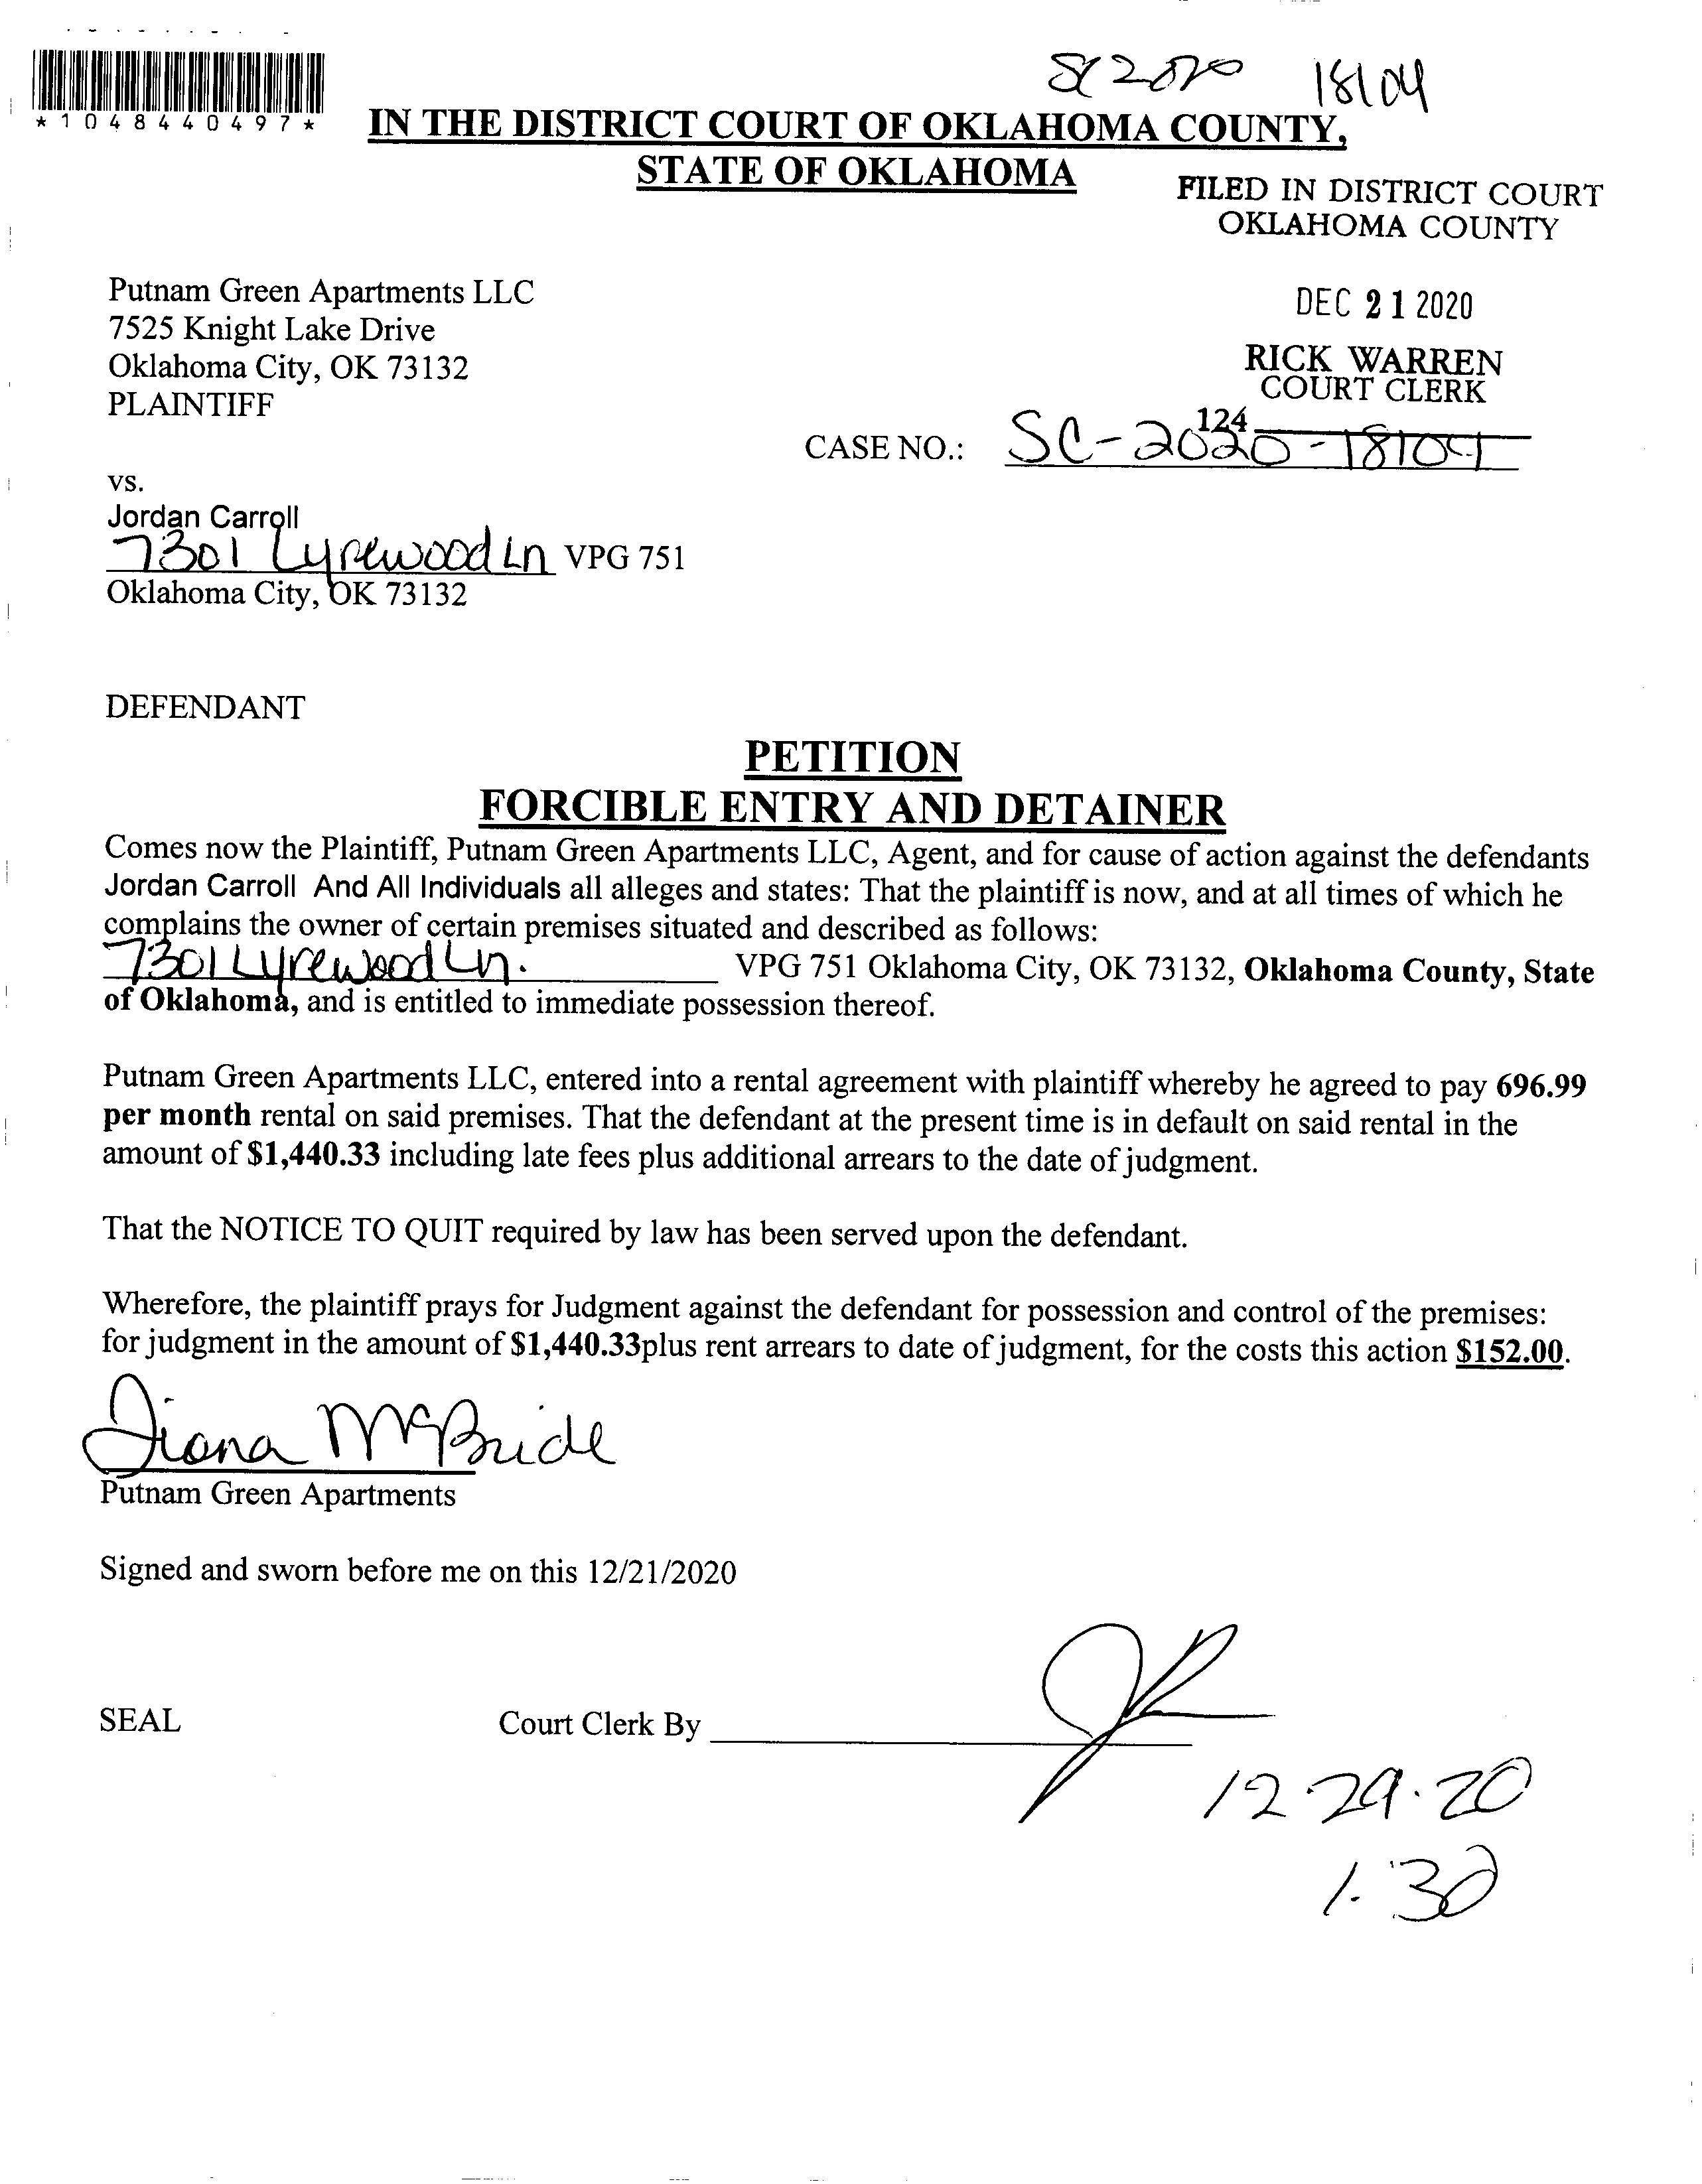 SC 2020 18104
*1048440497*
IN THE DISTRICT COURT OF OKLAHOMA COUNTY,
STATE OF OKLAHOMA
FILED IN DISTRICT COURT
OKLAHOMA COUNTY
Putnam Green Apartments LLC
7525 Knight Lake Drive
Oklahoma City, OK 73132
PLAINTIFF
DEC 21 2020
RICK WARREN
COURT CLERK
124
CASE NO.: SC-2020-18104
vs.
Jordan Carroll
7301 Lyrewood Ln VPG 751
Oklahoma City, OK 73132
DEFENDANT
PETITION
FORCIBLE ENTRY AND DETAINER
Comes now the Plaintiff, Putnam Green Apartments LLC, Agent, and for cause of action against the defendants
Jordan Carroll And All Individuals all alleges and states: That the plaintiff is now, and at all times of which he
complains the owner of certain premises situated and described as follows:
7301 Lyrewood Ln. VPG 751 Oklahoma City, OK 73132, Oklahoma County, State
of Oklahoma, and is entitled to immediate possession thereof.
Putnam Green Apartments LLC, entered into a rental agreement with plaintiff whereby he agreed to pay 696.99
per month rental on said premises. That the defendant at the present time is in default on said rental in the
amount of $1,440.33 including late fees plus additional arrears to the date of judgment.
That the NOTICE TO QUIT required by law has been served upon the defendant.
Wherefore, the plaintiff prays for Judgment against the defendant for possession and control of the premises:
for judgment in the amount of $1,440.33plus rent arrears to date of judgment, for the costs this action $152.00.
Diana McBride
Putnam Green Apartments
Signed and sworn before me on this 12/21/2020
SEAL Court Clerk By
12-29-20
1:30